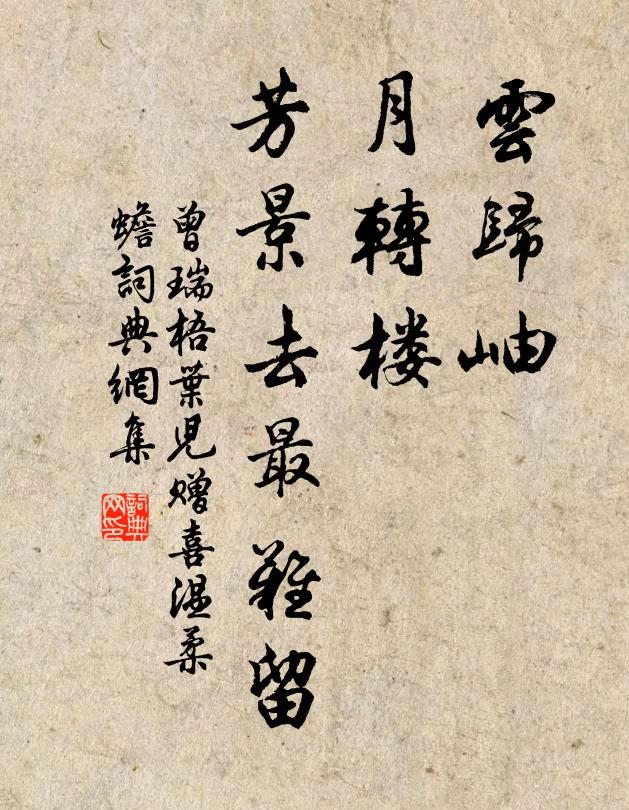 雲歸岫
月轉楼
芳景去最難留
曾瑞梧葉児贈喜温柔
蟾詞典網集
詞典网印